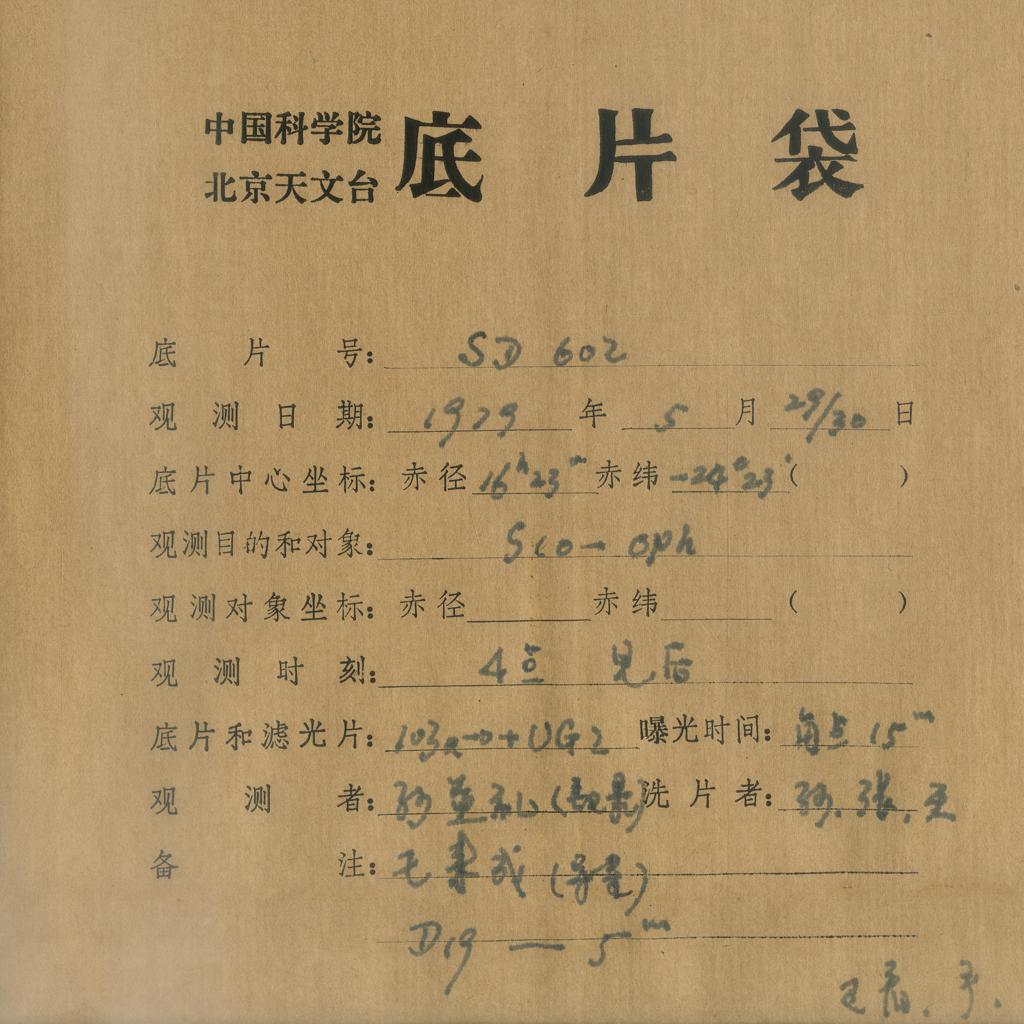 中国科学院
北京天文台
底片袋
底片号： SD 602
观测日期： 1979 年 5 月 29/30 日
底片中心坐标： 赤径 16ʰ23ᵐ 赤纬 -24°23′ ( )
观测目的和对象： Sco－oph
观测对象坐标： 赤径 赤纬 ( )
观测时刻： 4点 见后
底片和滤光片： 103a-o+UG2 曝光时间： 每点 15ᵐ
观测者： 洗片者： 孙.张.王
备注： (导星)
D19 — 5ᵐ